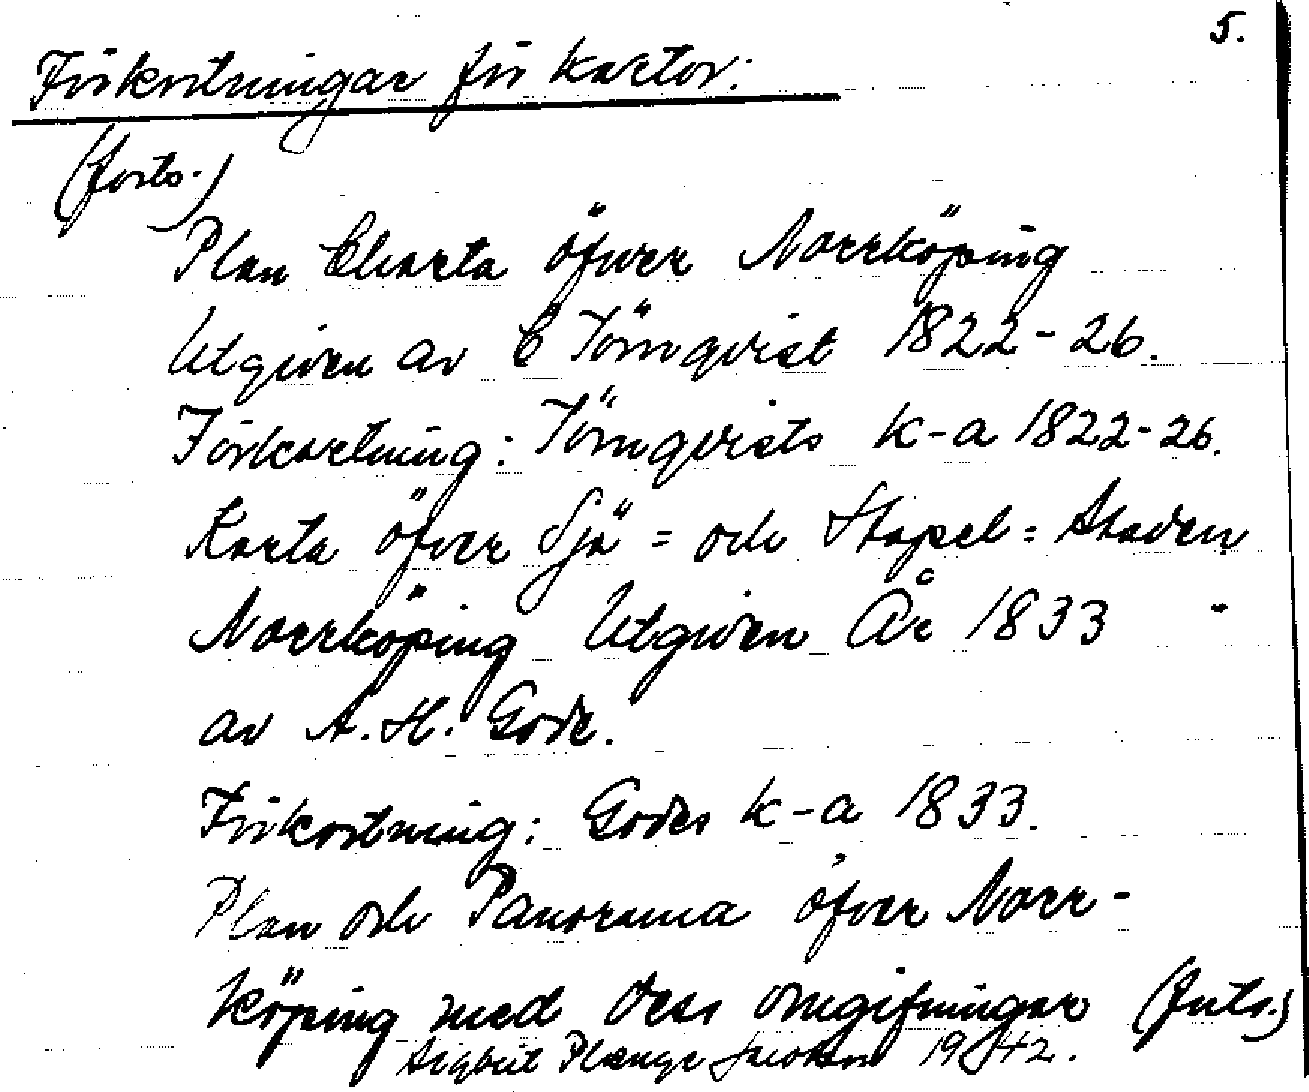 5.
Förkortningar för kartor:
(forts.)
Plan Charta öfwer Norrköping
Utgiven av C Törnqvist 1822-26.
Förkortning: Törnqvists k-a 1822-26.
Karta öfver Sjö = och Stapel = Staden
Norrköping Utgiven År 1833 -
av A. H. Gode.
Förkortning: Godes k-a 1833.
Plan och Panorama öfver Norr-
köping med dess omgifningar (forts.)
Sigbrit Plænge Jacobson 1942.